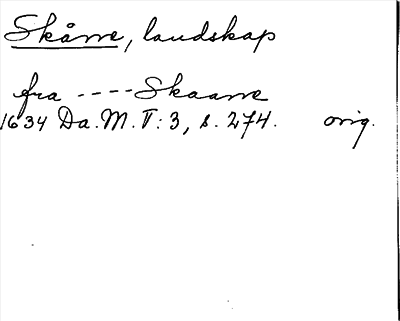 Skåne, landskap
fra ----Skaane
1634 Da.M. V:3, s. 274. orig.